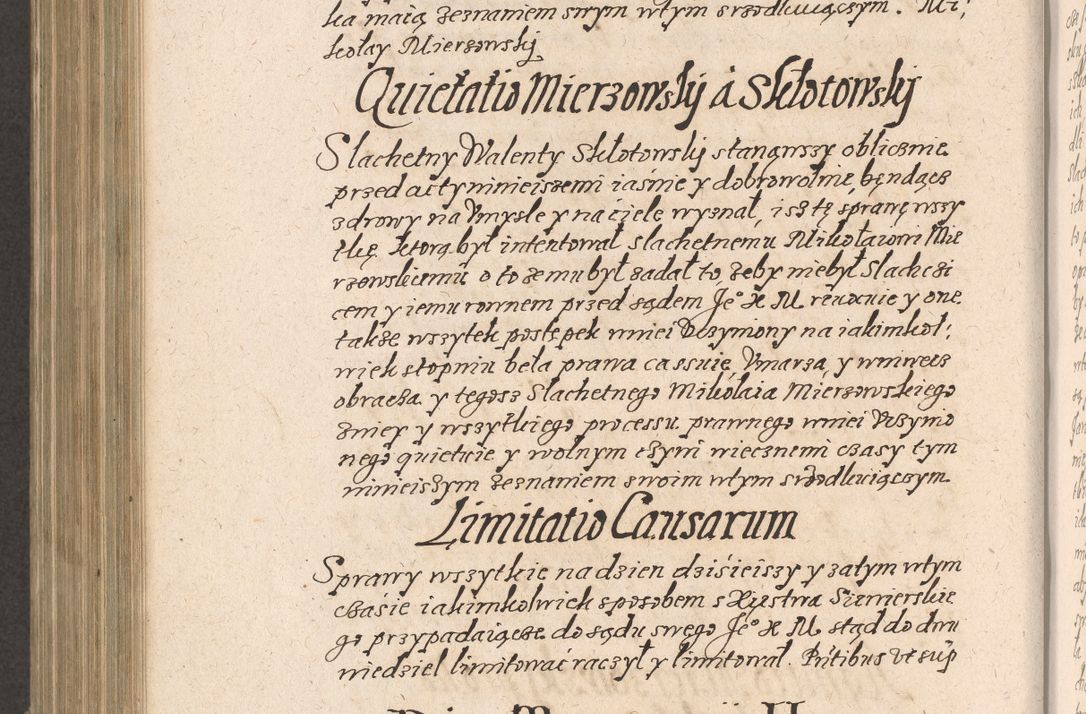 ka maią zeznaniem swym wtym srzodkuiączym. Mi,
kołay Mierzowskj
Quietatio Mierzowskj á Skłotowskj
Slachetny Walenty Skłotowskj stanąwszy oblicznie
przed acty ninieiszemi iaśnie y dobrowolnie będącz
zdrowy na Vmysle y na ciele wyznał, isz tę sprawę wszy
tkę ktorą był intentował slachetnemu Mikołaiowi Mie
rzowskiemu o to że mu był zadał to, żeby niebył Slachci
cem y iemu rownem przed sądem Je° X M rewocuie y one
także wszytek postępek wniei Vczyniony na iakimkol,
wiek stopniu beła prawa cassuie, Vmarza, y wniwecz
obracza y tegosz Slachetnego Mikołaia Mierzowskiego
zniey y wszytkiego processu prawnego wniei Vczynio
nego quietuie y wolnym czyni wiecznemi czasy tym
ninieiszym zeznaniem swoim wtym srzodkuiączym
Limitatio Causarum
Sprawy wszytkie na dzien dzisieiszy y zatym wtym
czasie iakimkolwiek sposobem s Xięstwa Siewierskie
go przypadaiącze do sądu swego Je° X M stąd do dwu
niedziel limitować raczył y limitował. Pntibus vt sup